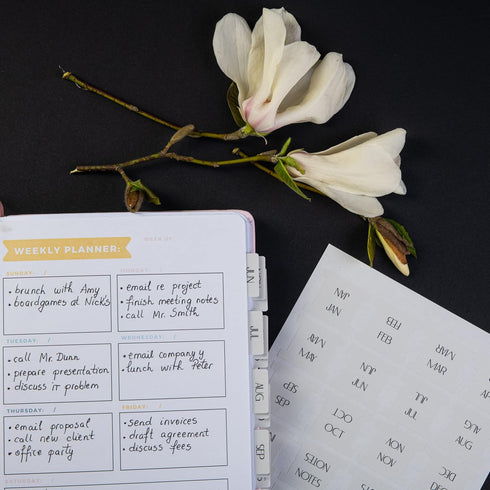 WEEKLY PLANNER:
WEEK OF:
SUNDAY: /
MONDAY: /
• brunch with Amy
• boardgames at Nick's
• email re project
• finish meeting notes
• call Mr. Smith
TUESDAY: /
WEDNESDAY: /
• call Mr. Dunn
• prepare presentation
• discuss IT problem
• email company y
• lunch with Peter
THURSDAY: /
FRIDAY: /
• email proposal
• call new client
• office party
• send invoices
• draft agreement
• discuss fees
SATURDAY: /
JUN
JUL
AUG
SEP
JAN
JAN
FEB
FEB
MAR
MAR
MAY
MAY
JUN
JUN
JUL
JUL
AUG
AUG
SEP
SEP
OCT
OCT
NOV
NOV
DEC
NOTES
NOTES